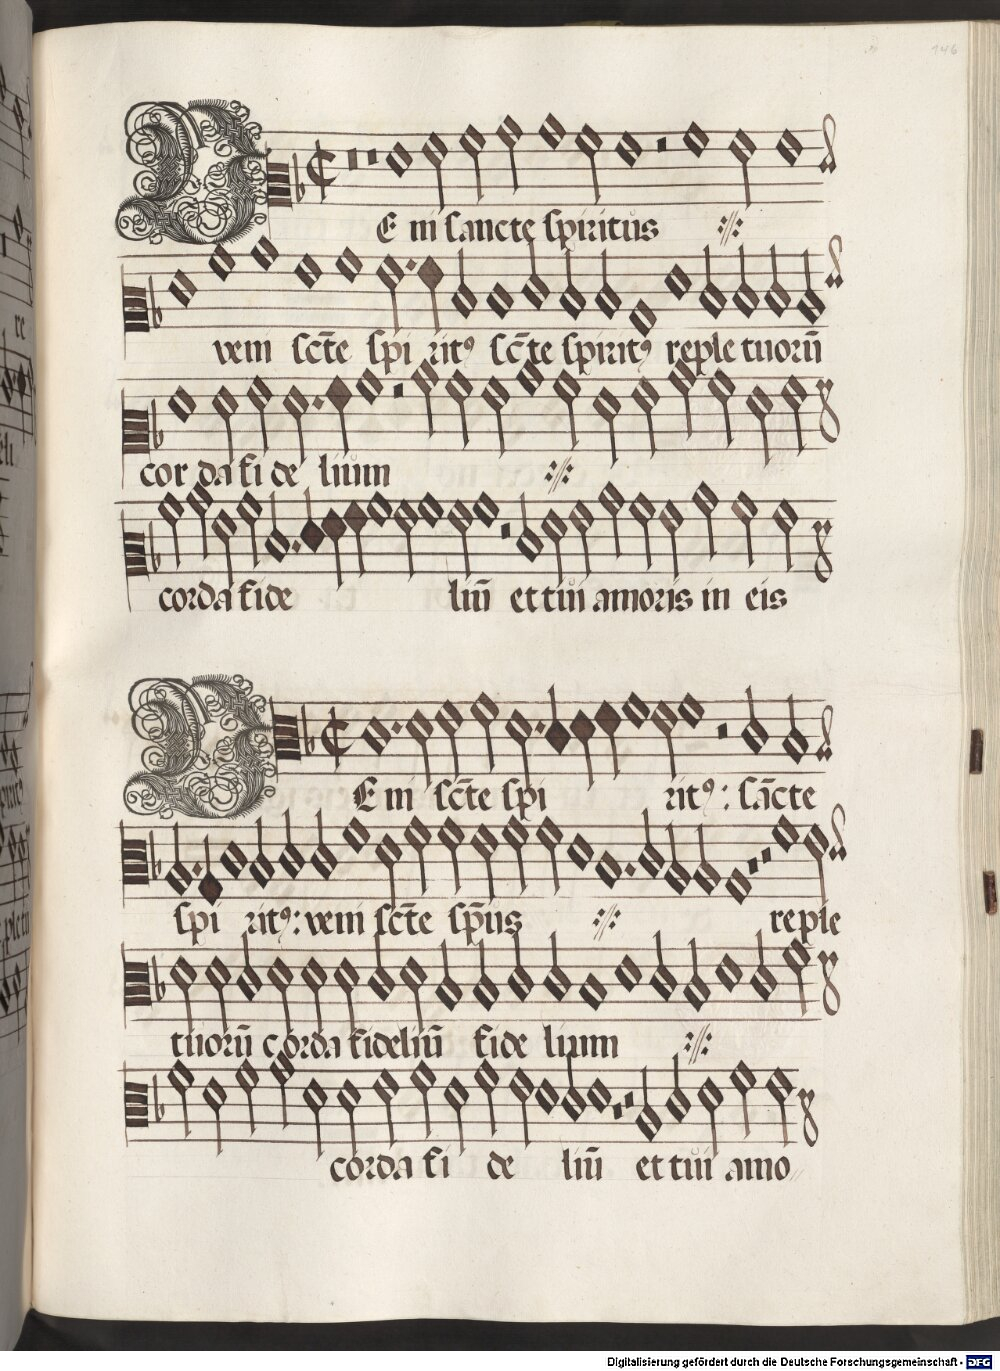 146
VE ni sancte spiritus ://:
veni sc̄te spi rit⁹ sc̄te spirit⁹ reple tuorū
cor da fi de lium ://:
corda fide liū et tui amoris in eis
VE ni sc̄te spi rit⁹: sācte
spi rit⁹: veni sc̄te sp̄us ://: reple
tuorū corda fideliū fide lium ://:
corda fi de liū et tui amo
Digitalisierung gefördert durch die Deutsche Forschungsgemeinschaft - DFG